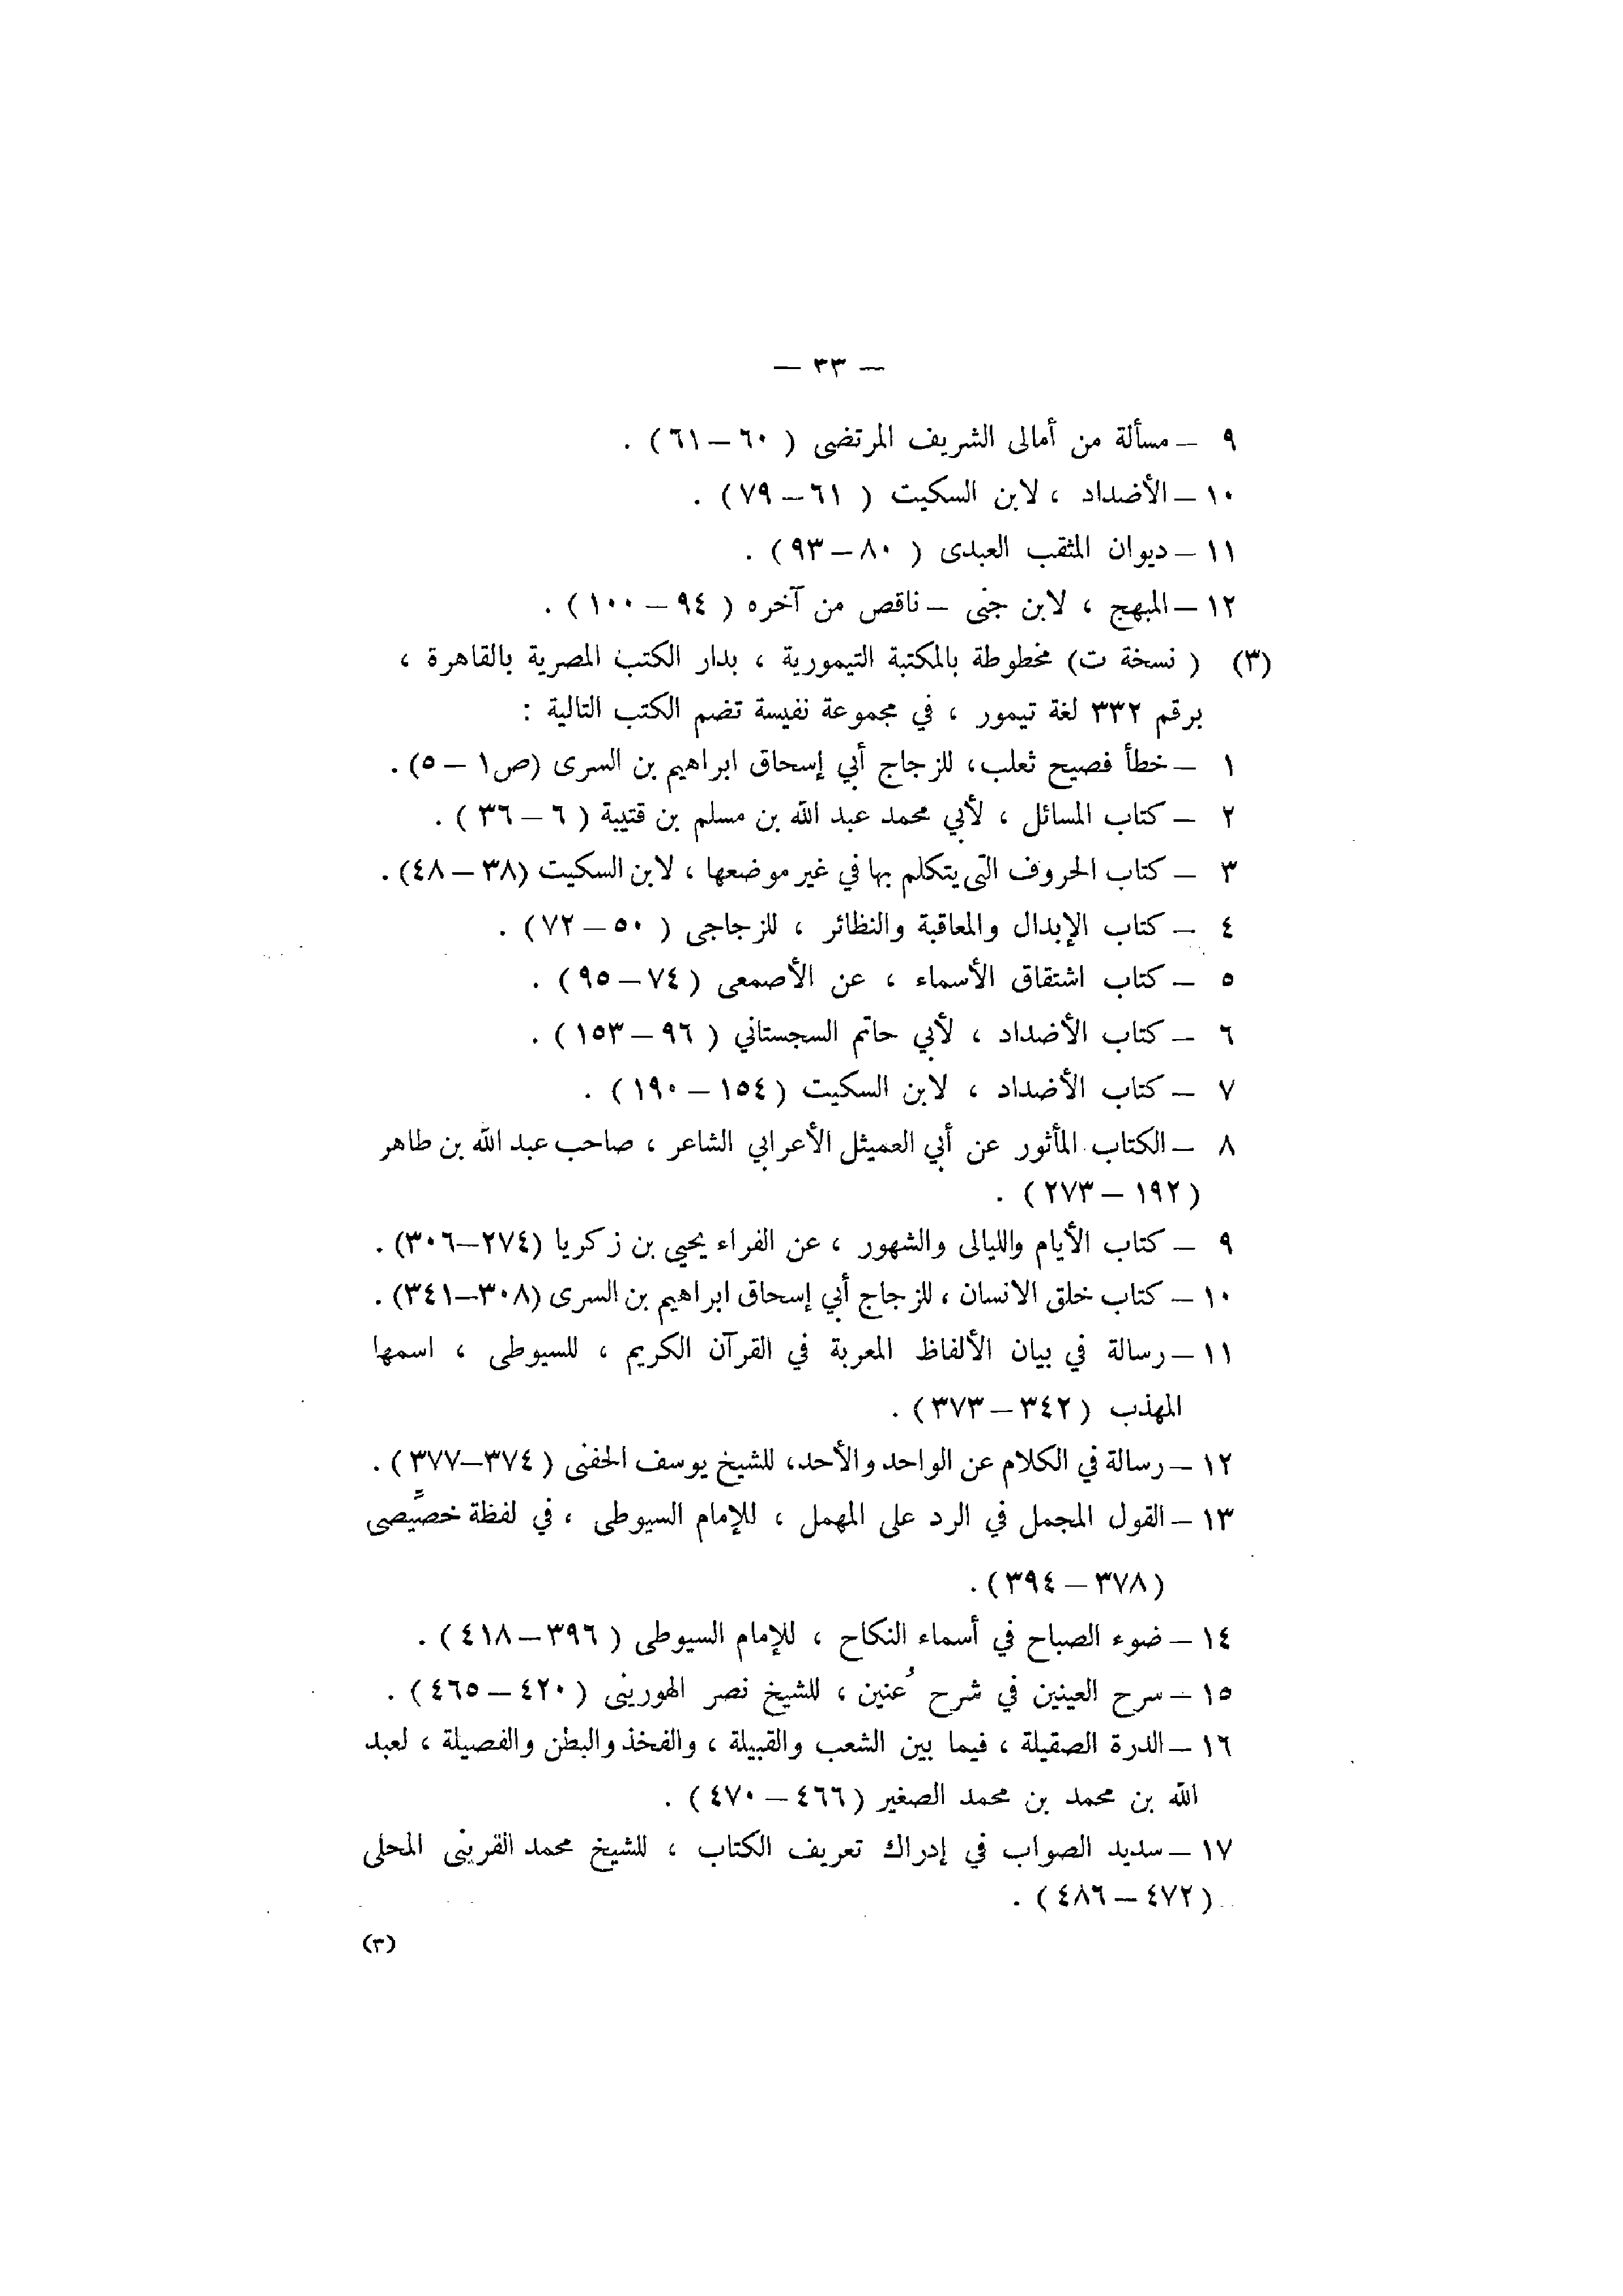 — ٣٣ —
٩ — مسألة من أمالى الشريف المرتضى ( ٦٠ — ٦١ ) .
١٠ — الأضداد ، لابن السكيت ( ٦١ — ٧٩ ) .
١١ — ديوان المثقب العبدى ( ٨٠ — ٩٣ ) .
١٢ — المبهج ، لابن جنى — ناقص من آخره ( ٩٤ — ١٠٠ ) .
(٣) ( نسخة ت ) مخطوطة بالمكتبة التيمورية ، بدار الكتب المصرية بالقاهرة ،
برقم ٣٣٢ لغة تيمور ، في مجموعة نفيسة تضم الكتب التالية :
١ — خطأ فصيح ثعلب، للزجاج أبي إسحاق ابراهيم بن السرى (ص١ — ٥) .
٢ — كتاب المسائل ، لأبي محمد عبد الله بن مسلم بن قتيبة ( ٦ — ٣٦ ) .
٣ — كتاب الحروف التى يتكلم بها في غير موضعها ، لابن السكيت (٣٨ — ٤٨) .
٤ — كتاب الإبدال والمعاقبة والنظائر ، للزجاجى ( ٥٠ — ٧٢ ) .
٥ — كتاب اشتقاق الأسماء ، عن الأصمعى ( ٧٤ — ٩٥ ) .
٦ — كتاب الأضداد ، لأبي حاتم السجستاني ( ٩٦ — ١٥٣ ) .
٧ — كتاب الأضداد ، لابن السكيت ( ١٥٤ — ١٩٠ ) .
٨ — الكتاب المأثور عن أبي العميثل الأعرابي الشاعر ، صاحب عبد الله بن طاهر
( ١٩٢ — ٢٧٣ ) .
٩ — كتاب الأيام والليالى والشهور ، عن الفراء يحيى بن زكريا (٢٧٤—٣٠٦) .
١٠ — كتاب خلق الانسان ، للزجاج أبي إسحاق ابراهيم بن السرى (٣٠٨—٣٤١) .
١١ — رسالة في بيان الألفاظ المعربة في القرآن الكريم ، للسيوطى ، اسمها
المهذب ( ٣٤٢ — ٣٧٣ ) .
١٢ — رسالة في الكلام عن الواحد والأحد، للشيخ يوسف الحفنى ( ٣٧٤—٣٧٧ ) .
١٣ — القول المجمل في الرد على المهمل ، للإمام السيوطى ، في لفظة خصّيصى
( ٣٧٨ — ٣٩٤ ) .
١٤ — ضوء الصباح في أسماء النكاح ، للإمام السيوطى ( ٣٩٦ — ٤١٨ ) .
١٥ — سرح العينين في شرح عُنين ، للشيخ نصر الهورينى ( ٤٢٠ — ٤٦٥ ) .
١٦ — الدرة الصقيلة ، فيما بين الشعب والقبيلة ، والفخذ والبطن والفصيلة ، لعبد
الله بن محمد بن محمد الصغير ( ٤٦٦ — ٤٧٠ ) .
١٧ — سديد الصواب في إدراك تعريف الكتاب ، للشيخ محمد القرينى المحلى
( ٤٧٢ — ٤٨٦ ) .
(٣)